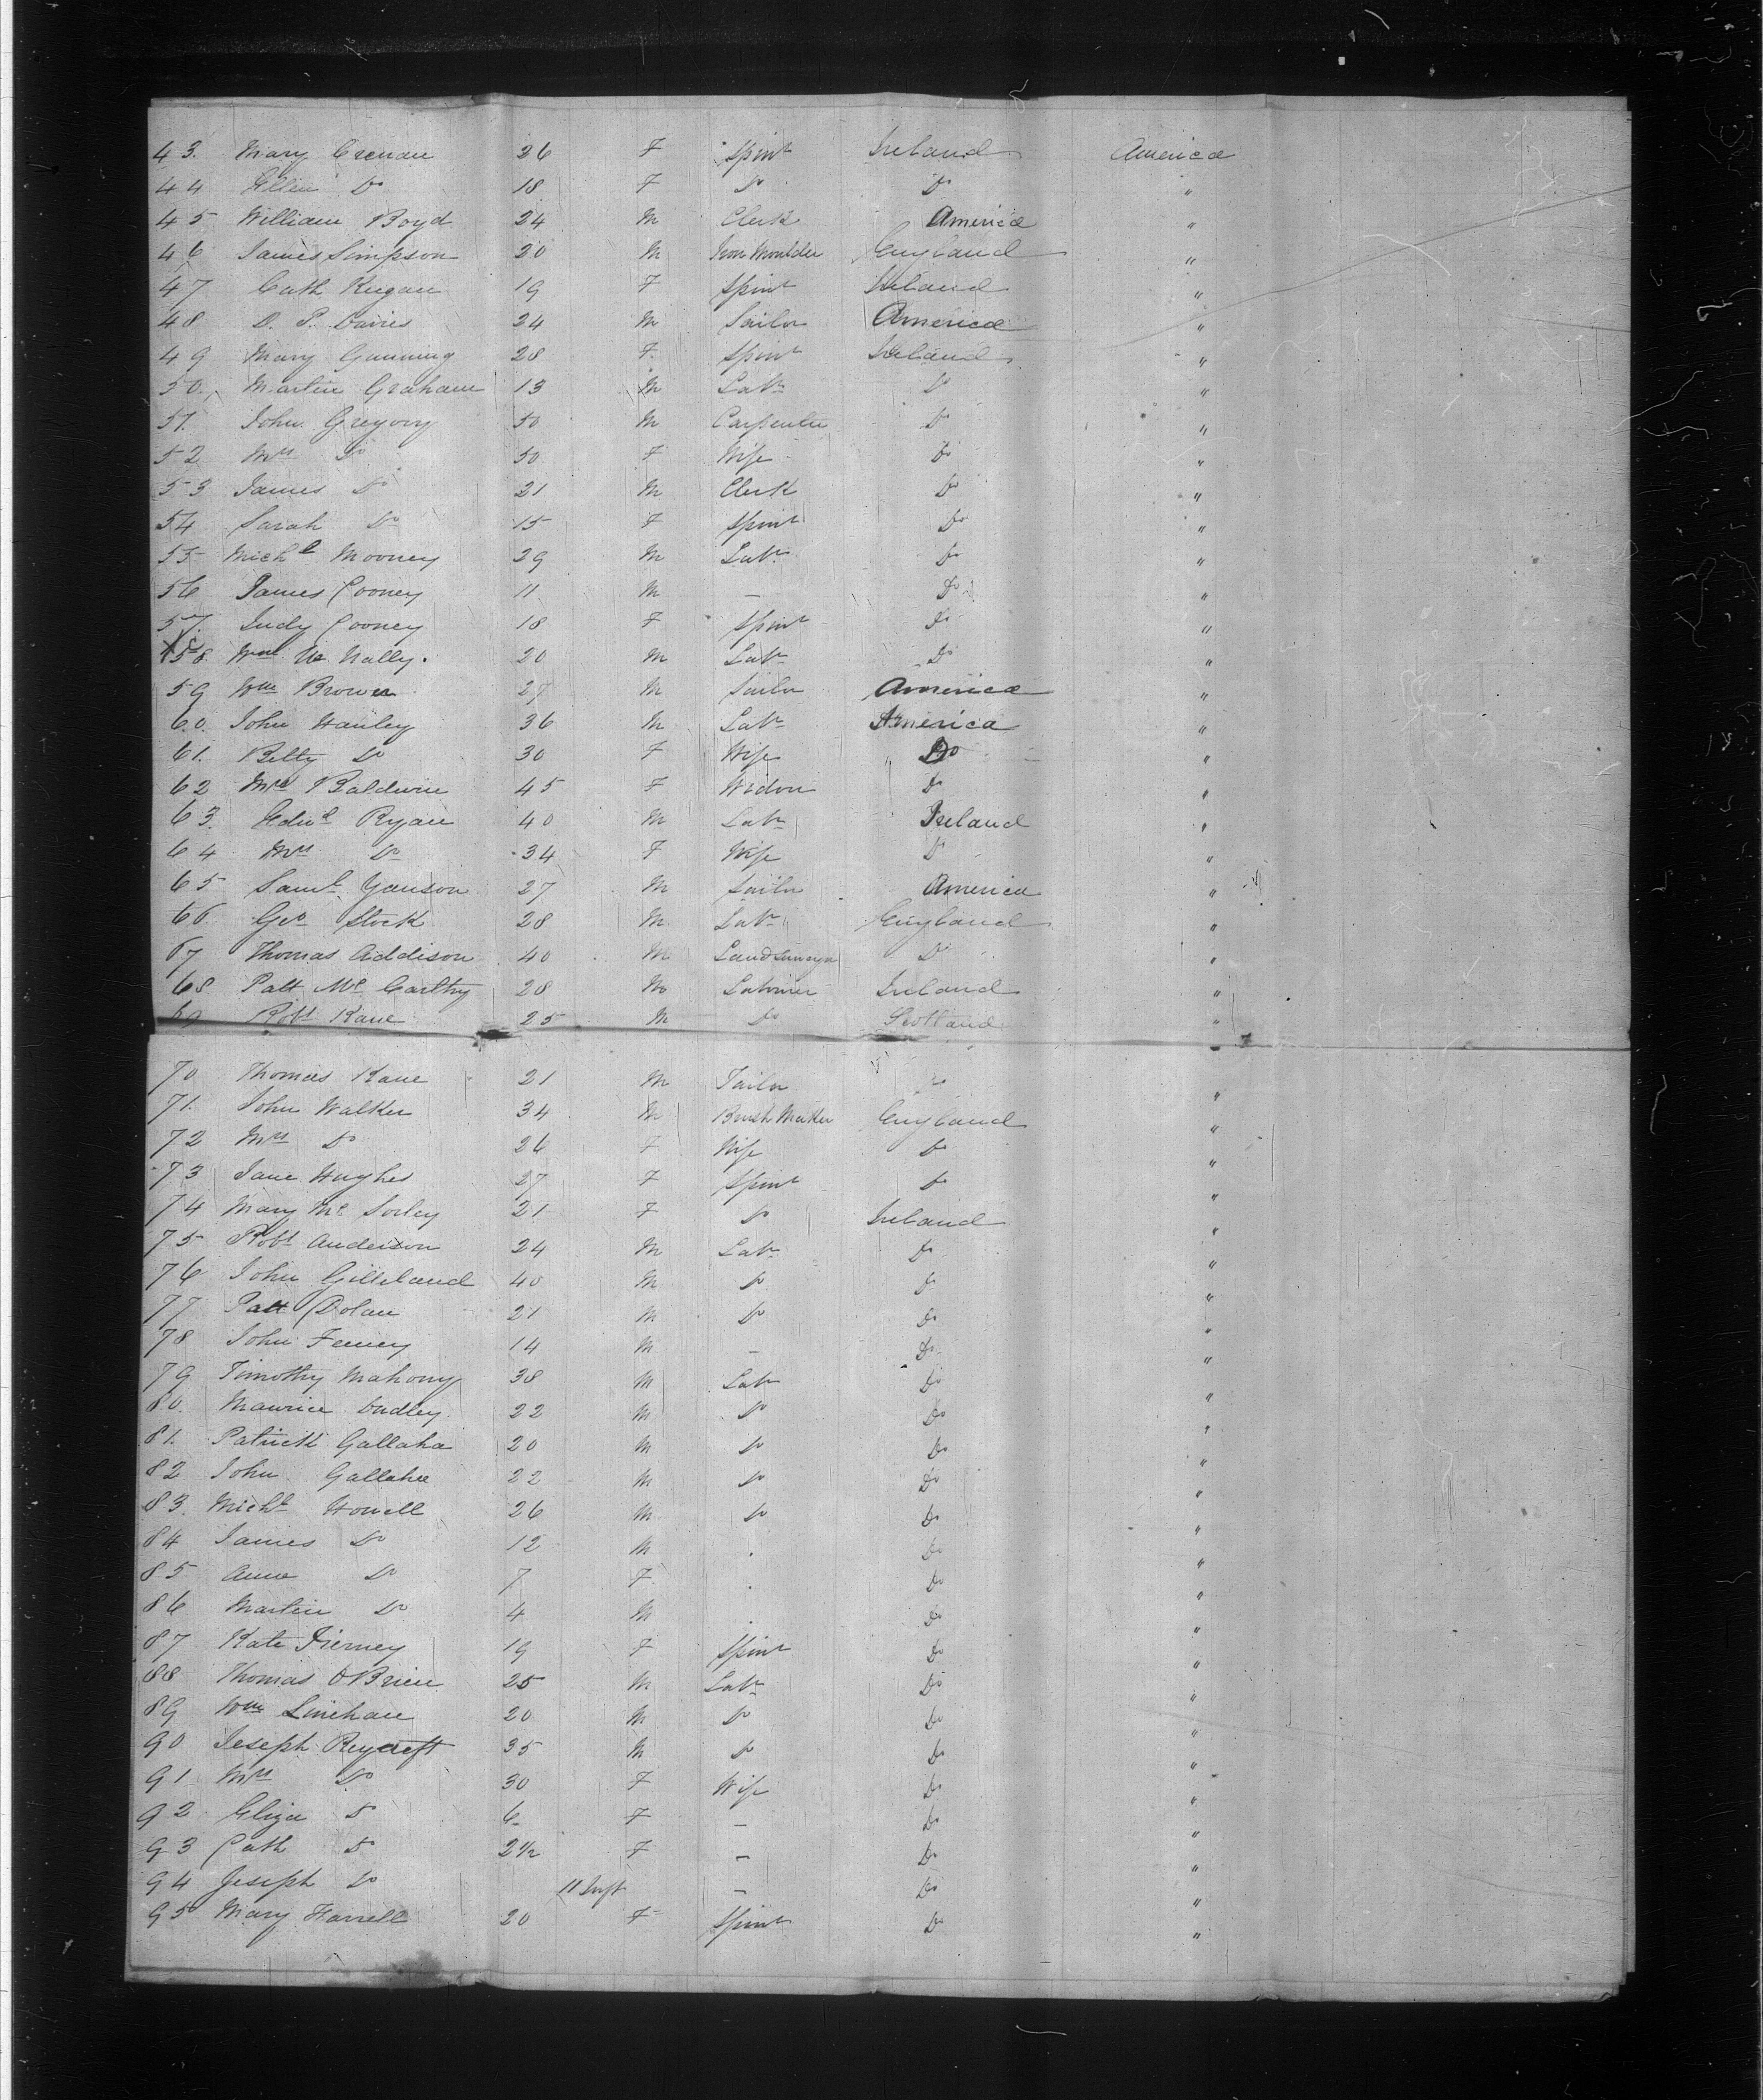 43. Mary Crenan 26 F Spinr Ireland America
44 Ellen Do 18 F Do Do "
45 William Boyd 24 M Clerk America "
46 James Simpson 20 M Iron Moulder England "
47 Cath Keegan 19 F Spinr Ireland "
48 D. P. Davies 24 M Sailor America "
49 Mary Gunning 28 F. Spinr Ireland "
50. Martin Graham 13 M Labr Do "
51. John Gregory 50 M Carpenter Do "
52 Mrs Do 50 F Wife Do "
53 James Do 21 M Clerk Do "
54 Sarah Do 15 F Spinr Do "
55 Michl Mooney 29 M Labr Do "
56 James Cooney 11 M — Do "
57. Judy Cooney 18 F Spinr Do "
58. Wm Mc Nally. 20 M Labr Do "
59 Wm Brown 27 M Sailor America "
60. John Hanley 36 M Labr America "
61. Betty Do 30 F Wife Do "
62 Mrs Baldwin 45 F Widow Do "
63. Edwd Ryan 40 M Labr Ireland "
64 Mrs Do 34 F Wife Do "
65 Saml Yanson 27 M Sailor America "
66. Geo Stock 28 M Labr England "
67 Thomas Addison 40 M Land Surveyr Do "
68 Patt Mc Carthy 28 M Labourer Ireland "
69 Robt Kane 25 M Do Scotland "
70 Thomas Kane 21 M Tailor Do "
71. John Walker 34 M Brush Maker England "
72 Mrs Do 26 F Wife Do "
73 Jane Hughes 27 F Spinr Do "
74 Mary Mc Sorley 21 F Do Ireland "
75 Robt Anderson 24 M Labr Do "
76 John Gilleland 40 M Do Do "
77 Patt Dolan 21 M Do Do "
78 John Feeney 14 M — Do "
79 Timothy Mahony 38 M Labr Do "
80. Maurice Dudley 22 M Do Do "
81. Patrick Gallaha 20 M Do Do "
82 John Gallaha 22 M Do Do "
83. Michl Howell 26 M Do Do "
84 James Do 12 M . Do "
85 Anne Do 7 F . Do "
86 Martin Do 4 M . Do "
87 Kate Tierney 19 F Spinr Do "
88 Thomas OBrien 25 M Labr Do "
89 Wm Linehan 20 M Do Do "
90 Joseph Reycroft 35 M Do Do "
91 Mrs Do 30 F Wife Do "
92 Eliza Do 6 F — Do "
93 Cath Do 2½ F — Do "
94 Joseph Do 11 Inft — Do "
95 Mary Farrell 20 F Spinr Do "